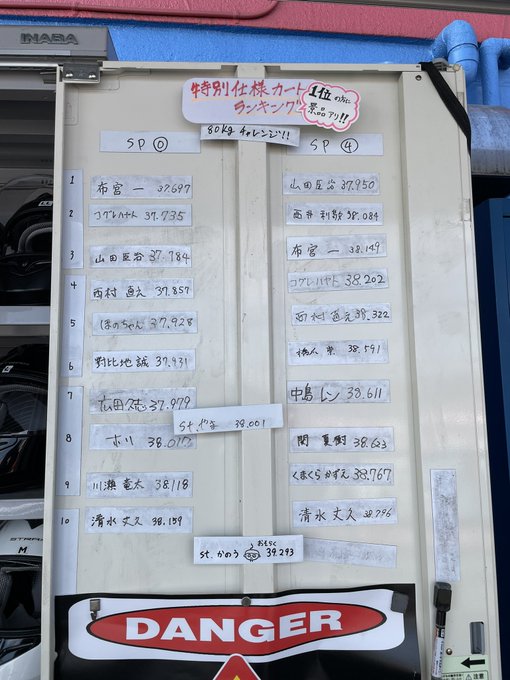 INABA
特別仕様カート
ランキング
1位の方に
景品アリ!!
80kg チャレンジ!!
SP ⓪
1 布宮 一 37.697
2 コグレハヤト 37.735
3 山田匡治 37.784
4 西村 直之 37.857
5 ほのちゃん 37.928
6 對比地 誠 37.931
7 広田 37.979
8 ホリ
9 川瀬 竜太 38.118
10 清水 丈久 38.159
SP ④
山田匡治 37.950
西井 38.084
布宮 一 38.149
コグレハヤト 38.202
西村 直之 38.322
38.591
中島 レン 38.611
関 夏樹
くまくらかずえ 38.767
清水 丈久 38.796
st. 38.001
st. かのう おそらく 39.293
DANGER
M
注意